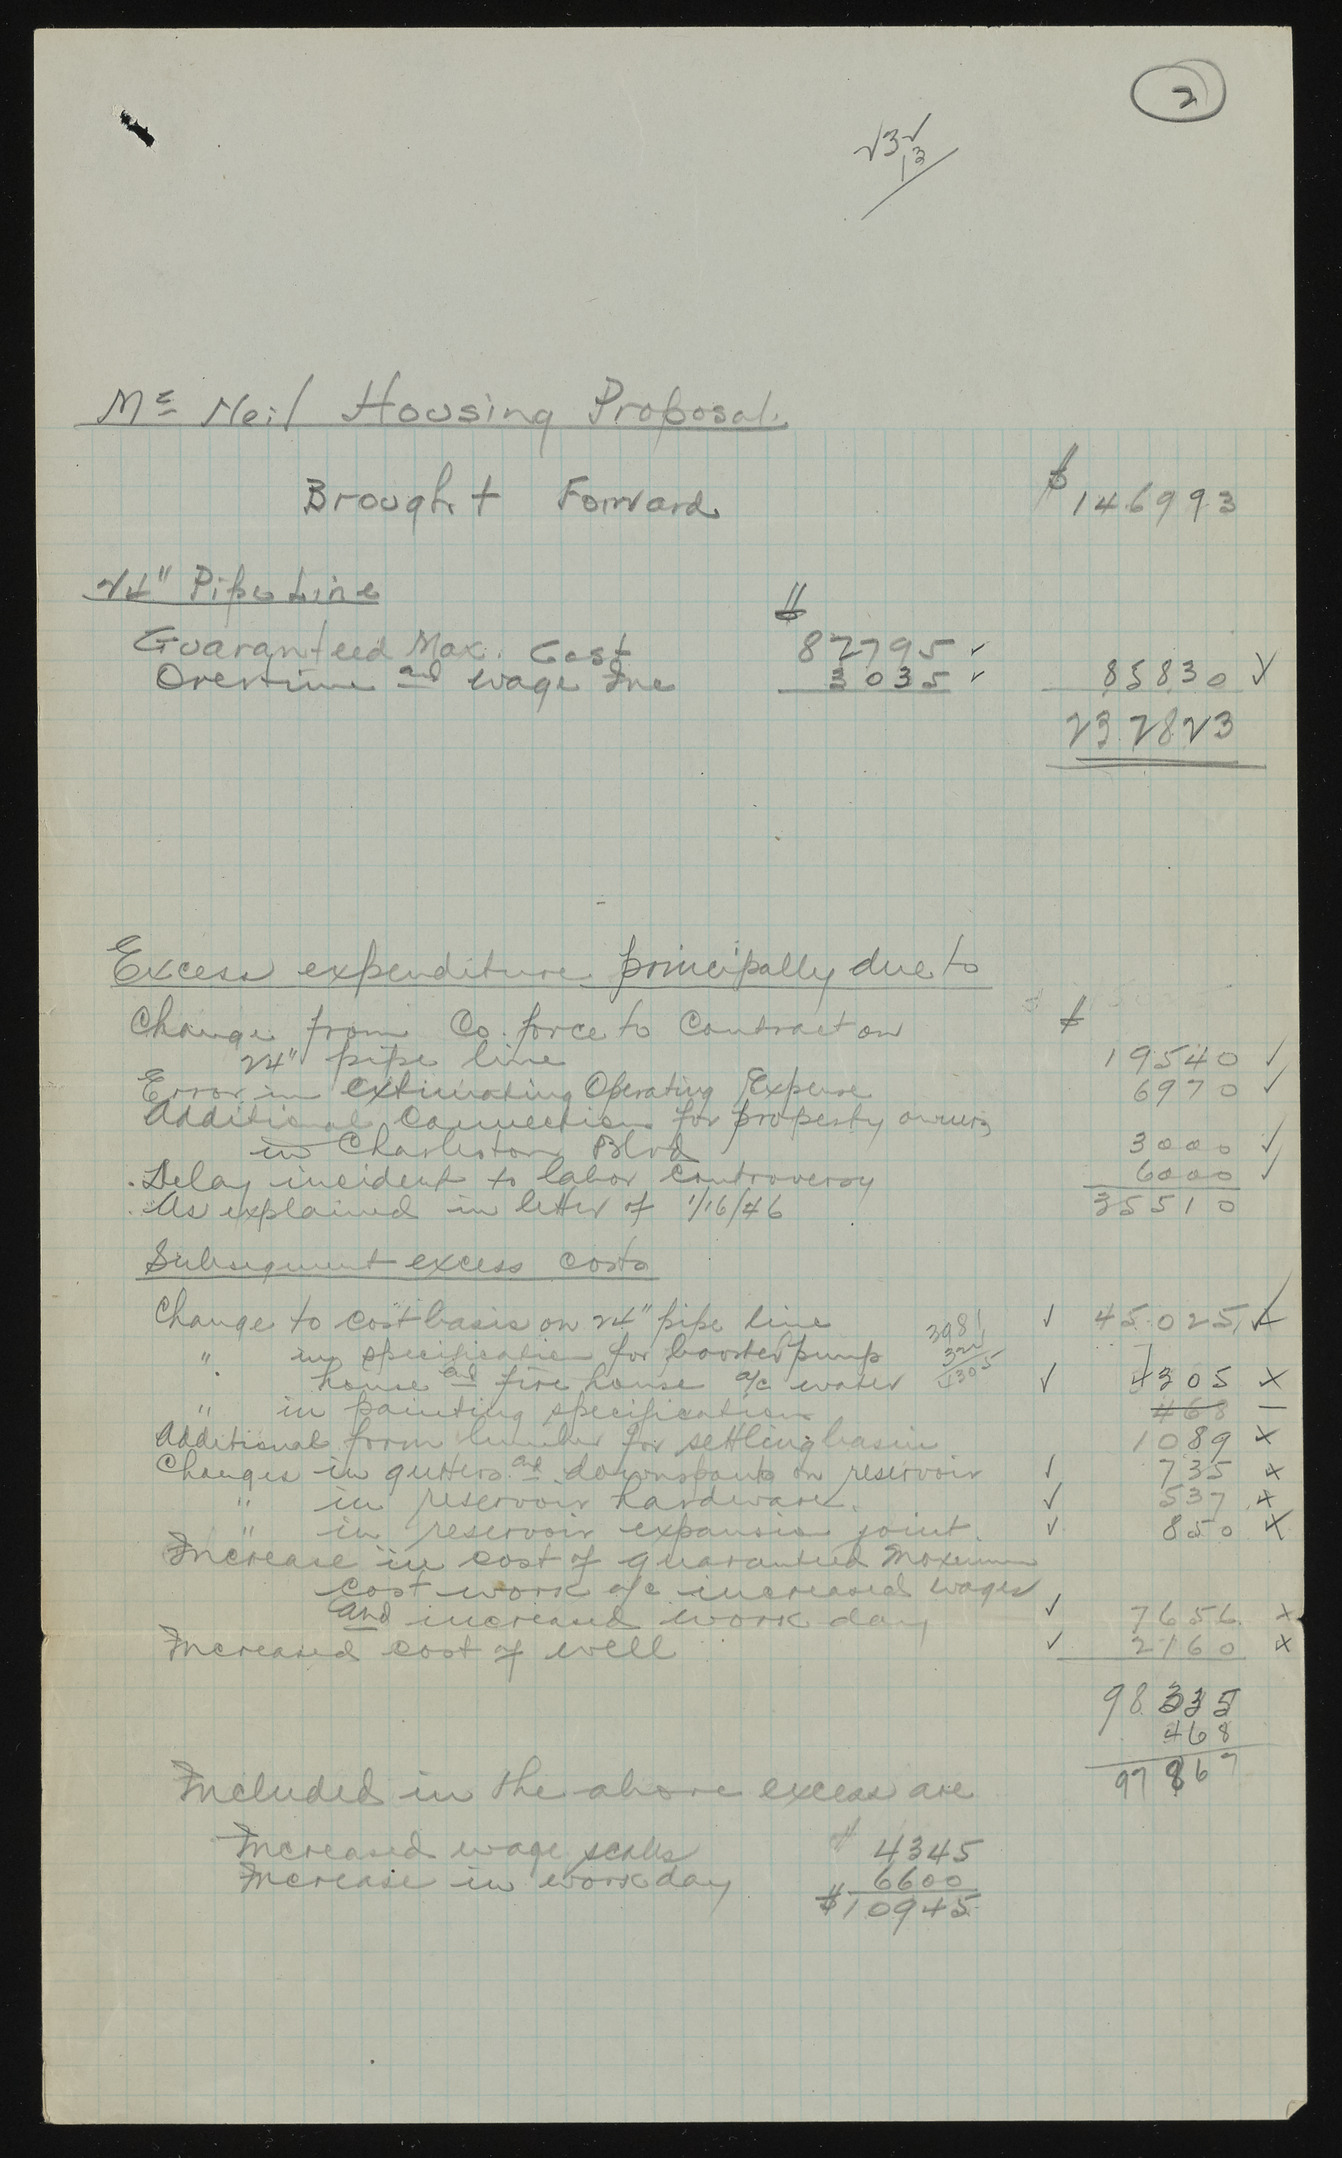 2
232
13
Mc Neil Housing Proposal
Brought Forward $ 146993
24" Pipe Line
$
Guaranteed Max. Cost 82795 ✓
Overtime and wage Inc 3035 ✓ 85830 ✓
232823
Excess expenditure principally due to
Change from Co. force to Contract on $
24" pipe line 19540 ✓
Error in estimating Operating Expense 6970 ✓
Additional Connections for property owners
in Charleston Blvd 3000 ✓
Delay incident to labor controversy 6000 ✓
As explained in letter of 1/16/46 35510
Subsequent excess costs
Change to cost basis on 24" pipe line ✓ 45025 ✓
" in specification for booster pump 3981
324
house and fire house a/c water 4305 ✓ 4305 x
" in painting specification 468 –
Additional form lumber for settling basin 1089 x
Changes in gutters and downspouts on reservoir ✓ 735 x
" in reservoir hardware. ✓ 537 x
" in reservoir expansion joint. ✓ 850 x
Increase in cost of guaranteed maximum
cost work a/c increased wages
and increased work day ✓ 7656 x
Increased cost of well ✓ 2160 x
98335
468
97867
Included in the above excess are
Increased wage scales $ 4345
Increase in workday 6600
$10945